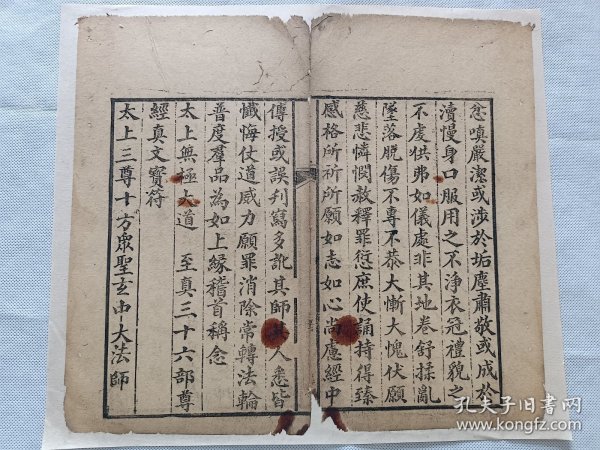 忿嗔嚴潔或涉於垢塵肅敬或成於
瀆慢身口服用之不淨衣冠禮貌之
不虔供弗如儀處非其地卷舒揉亂
墜落脫傷不專不恭大慚大愧伏願
慈悲憐憫赦釋罪愆庶使誦持得臻
感格所祈所願如志如心尚慮經中
傳授或誤刋寫多訛其師其人悉皆
懺悔仗道威力願罪消除常轉法輪
普度羣品為如上緣稽首稱念
太上無極大道 至真三十六部尊
經真文寳符
太上三尊十方眾聖玄中大法師
孔夫子旧书网
www.kongfz.com